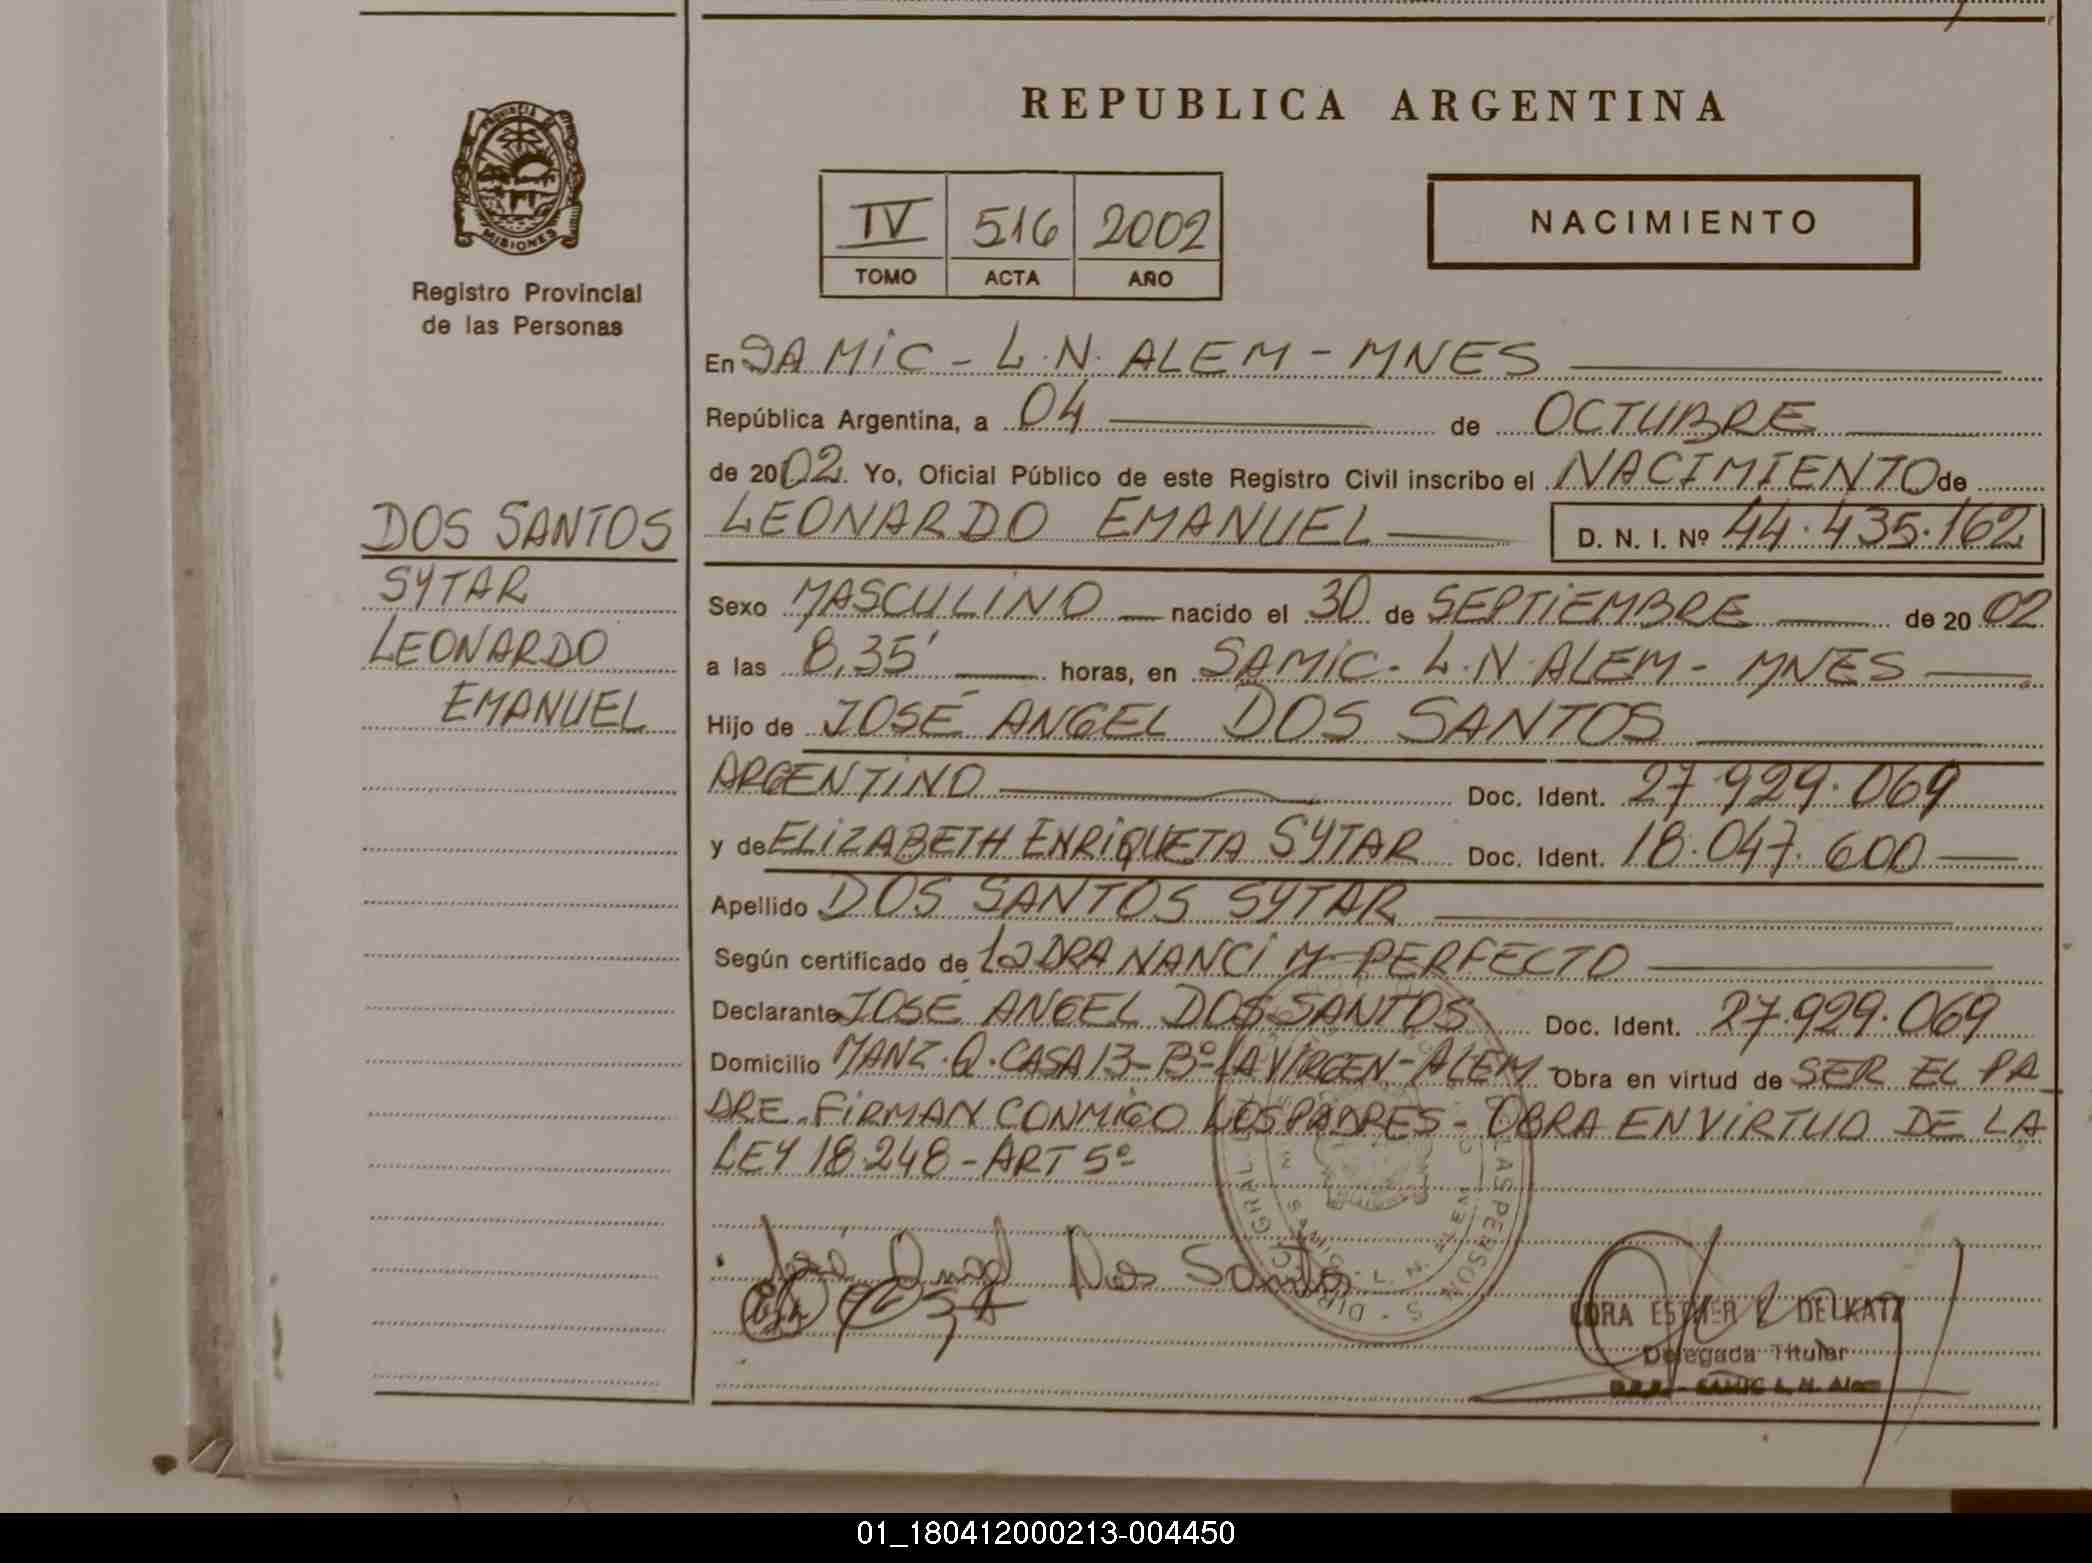 REPUBLICA ARGENTINA
PROVINCIA DE
MISIONES
Registro Provincial
de las Personas
IV 516 2002
TOMO ACTA AÑO
NACIMIENTO
En SAMIC - L.N. ALEM - MNES
República Argentina, a 04 de OCTUBRE
de 2002. Yo, Oficial Público de este Registro Civil inscribo el NACIMIENTO de
LEONARDO EMANUEL D. N. I. Nº 44.435.162
DOS SANTOS
SYTAR
LEONARDO
EMANUEL
Sexo MASCULINO nacido el 30 de SEPTIEMBRE de 2002
a las 8,35' horas, en SAMIC - L.N. ALEM - MNES
Hijo de JOSÉ ANGEL DOS SANTOS
ARGENTINO Doc. Ident. 27.929.069
y de ELIZABETH ENRIQUETA SYTAR Doc. Ident. 18.047.600
Apellido DOS SANTOS SYTAR
Según certificado de la DRA NANCI M PERFECTO
Declarante JOSÉ ANGEL DOS SANTOS Doc. Ident. 27.929.069
Domicilio MANZ. Q. CASA 13 - Bº LA VIRGEN - ALEM - Obra en virtud de SER EL PA
DRE. FIRMAN CONMIGO LOS PADRES - OBRA EN VIRTUD DE LA
LEY 18.248 - ART 5º
José Angel Dos Santos
DELKATZ
Delegada Titular
SAMIC L. N. Alem
01_180412000213-004450